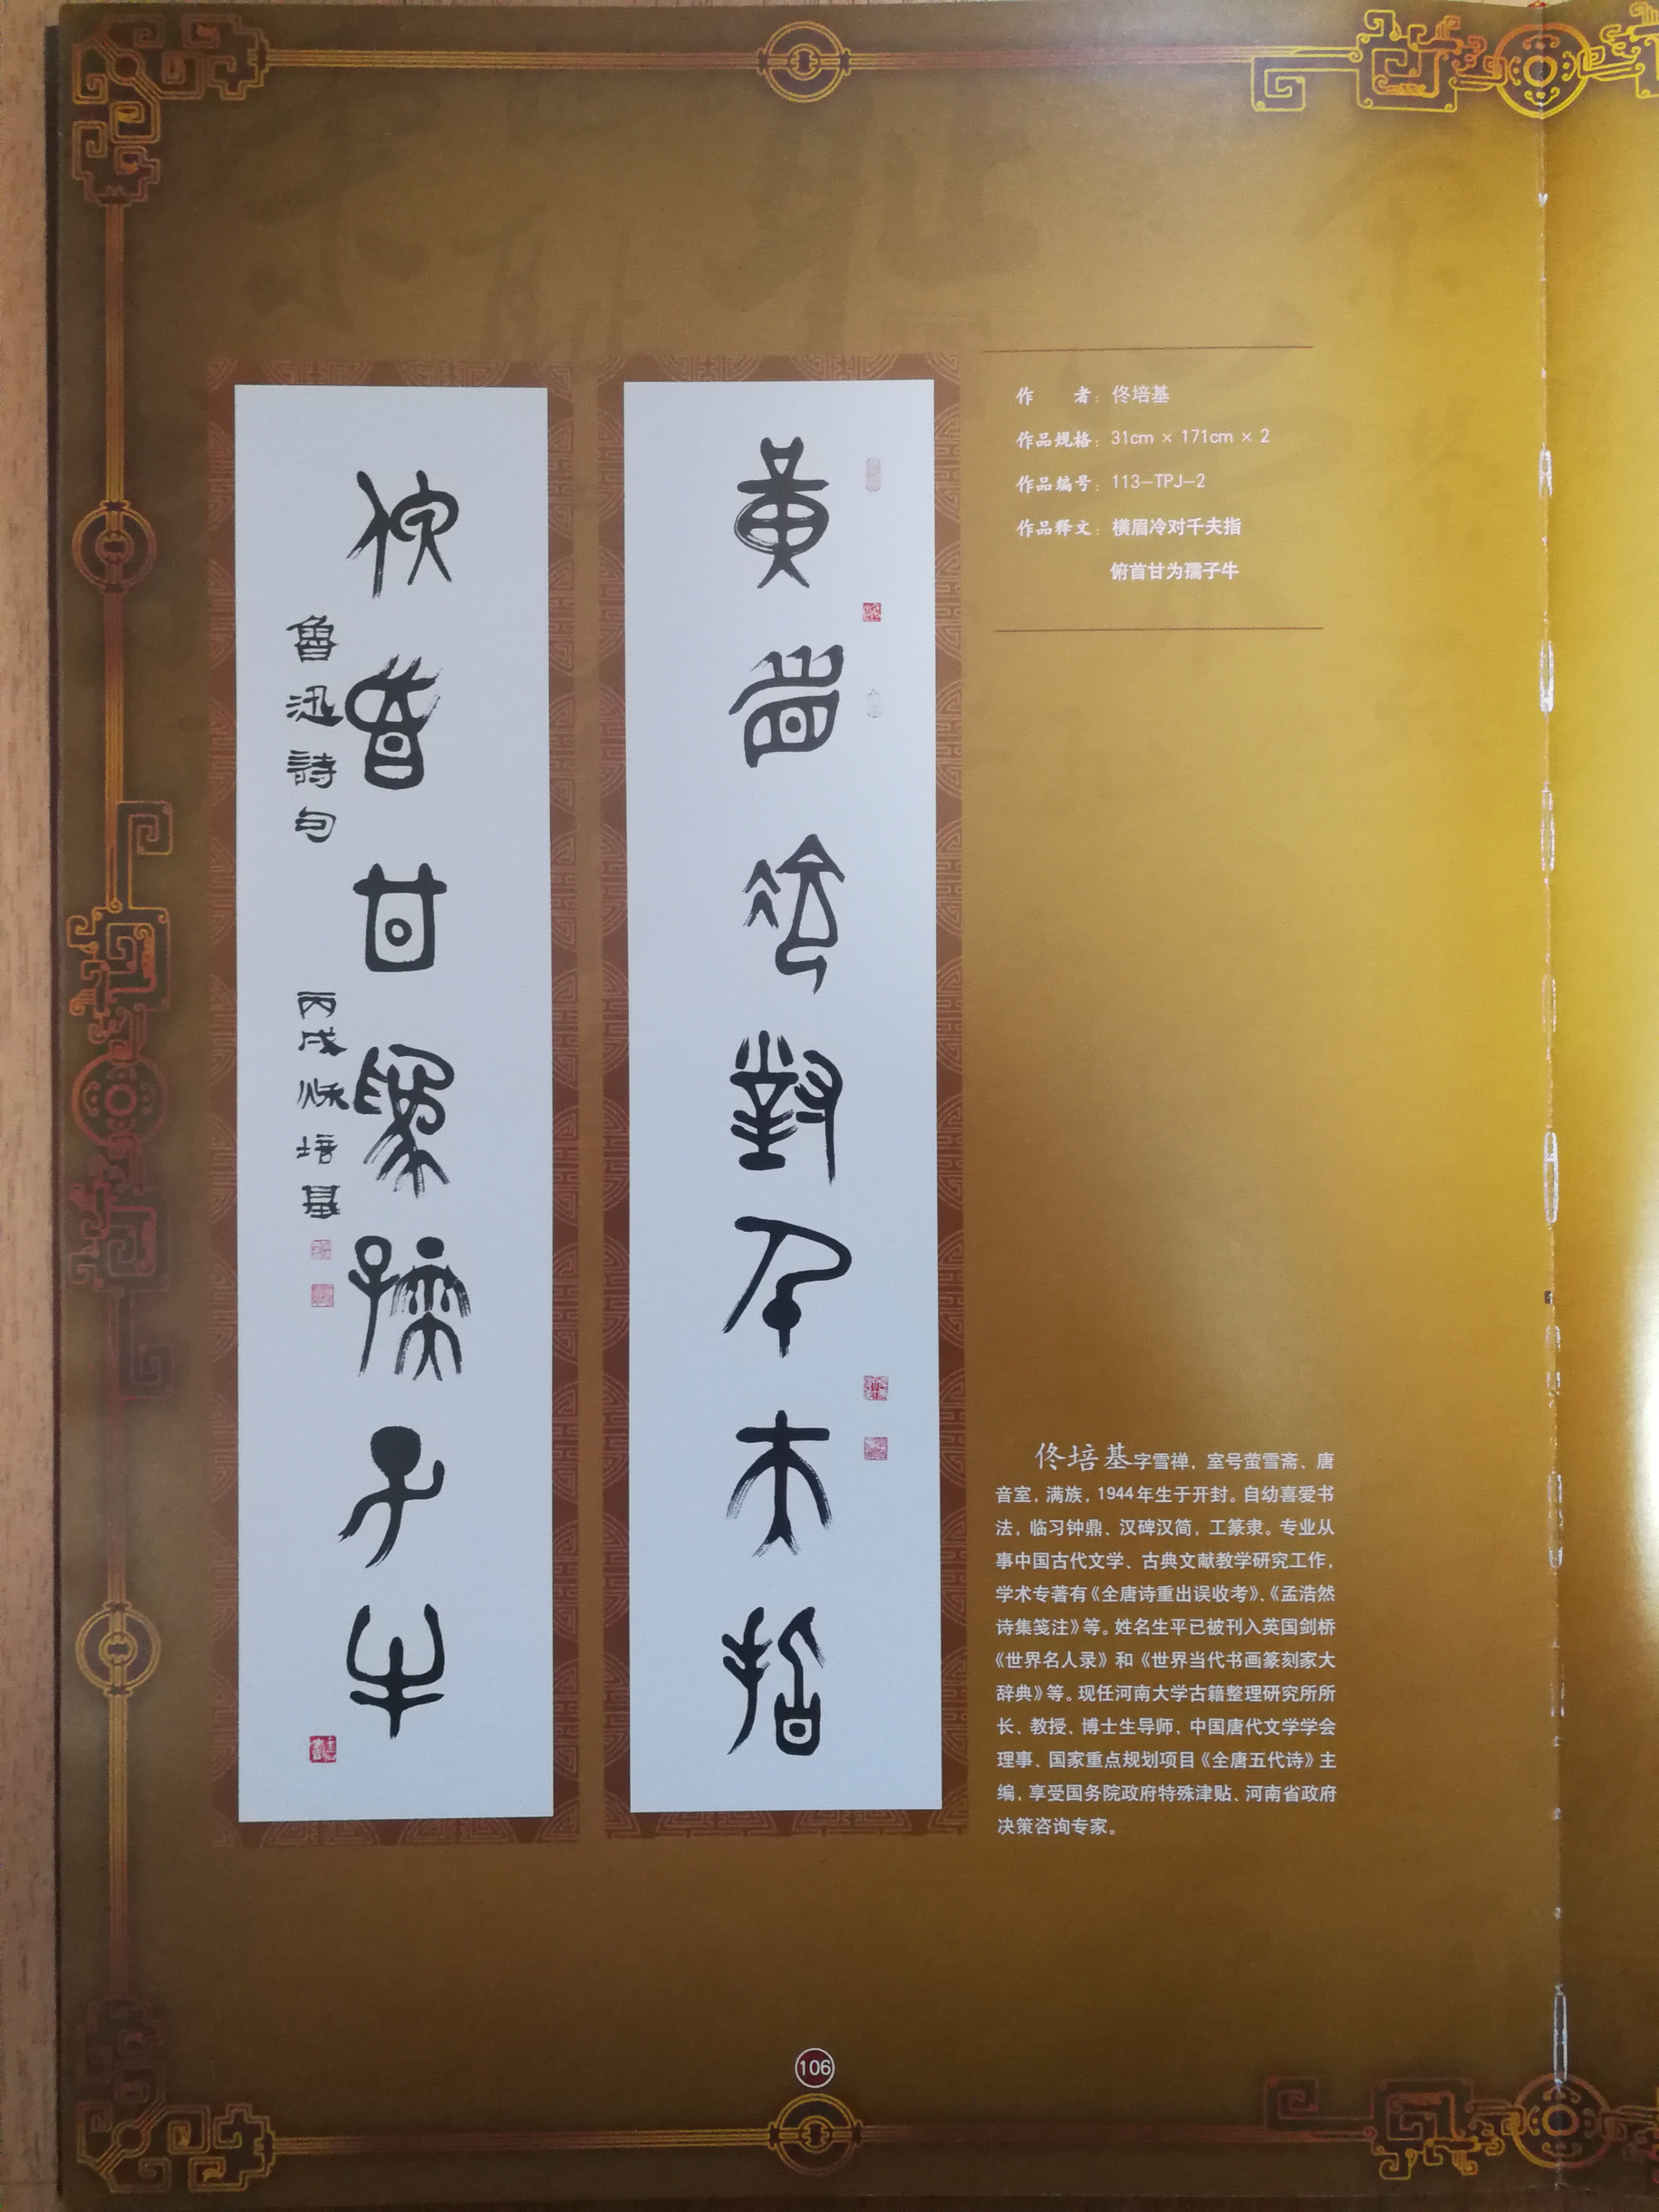 黄眉冷對千夫指
俯首甘為孺子牛
魯迅詩句
丙戌秌培基
作者：佟培基
作品规格：31cm × 171cm × 2
作品编号：113—TPJ—2
作品释文：横眉冷对千夫指
俯首甘为孺子牛
佟培基字雪禅，室号萤雪斋、唐
音室，满族，1944年生于开封。自幼喜爱书
法，临习钟鼎、汉碑汉简，工篆隶。专业从
事中国古代文学、古典文献教学研究工作，
学术专著有《全唐诗重出误收考》、《孟浩然
诗集笺注》等。姓名生平已被刊入英国剑桥
《世界名人录》和《世界当代书画篆刻家大
辞典》等。现任河南大学古籍整理研究所所
长、教授、博士生导师，中国唐代文学学会
理事、国家重点规划项目《全唐五代诗》主
编，享受国务院政府特殊津贴、河南省政府
决策咨询专家。
106